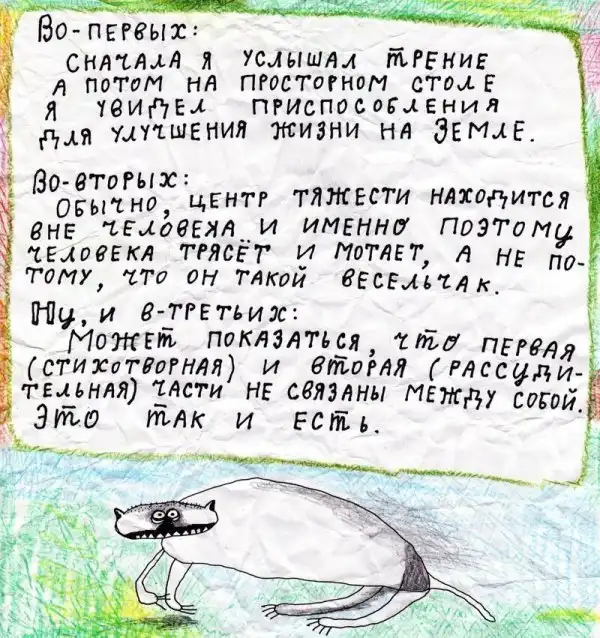 Во-первых:
Сначала я услышал трение
а потом на просторном столе
я увидел приспособления
для улучшения жизни на Земле.
Во-вторых:
Обычно, центр тяжести находится
вне человека и именно поэтому
человека трясёт и мотает, а не по-
тому, что он такой весельчак.
Ну, и в-третьих:
Может показаться, что первая
(стихотворная) и вторая (рассуди-
тельная) части не связаны между собой.
Это так и есть.